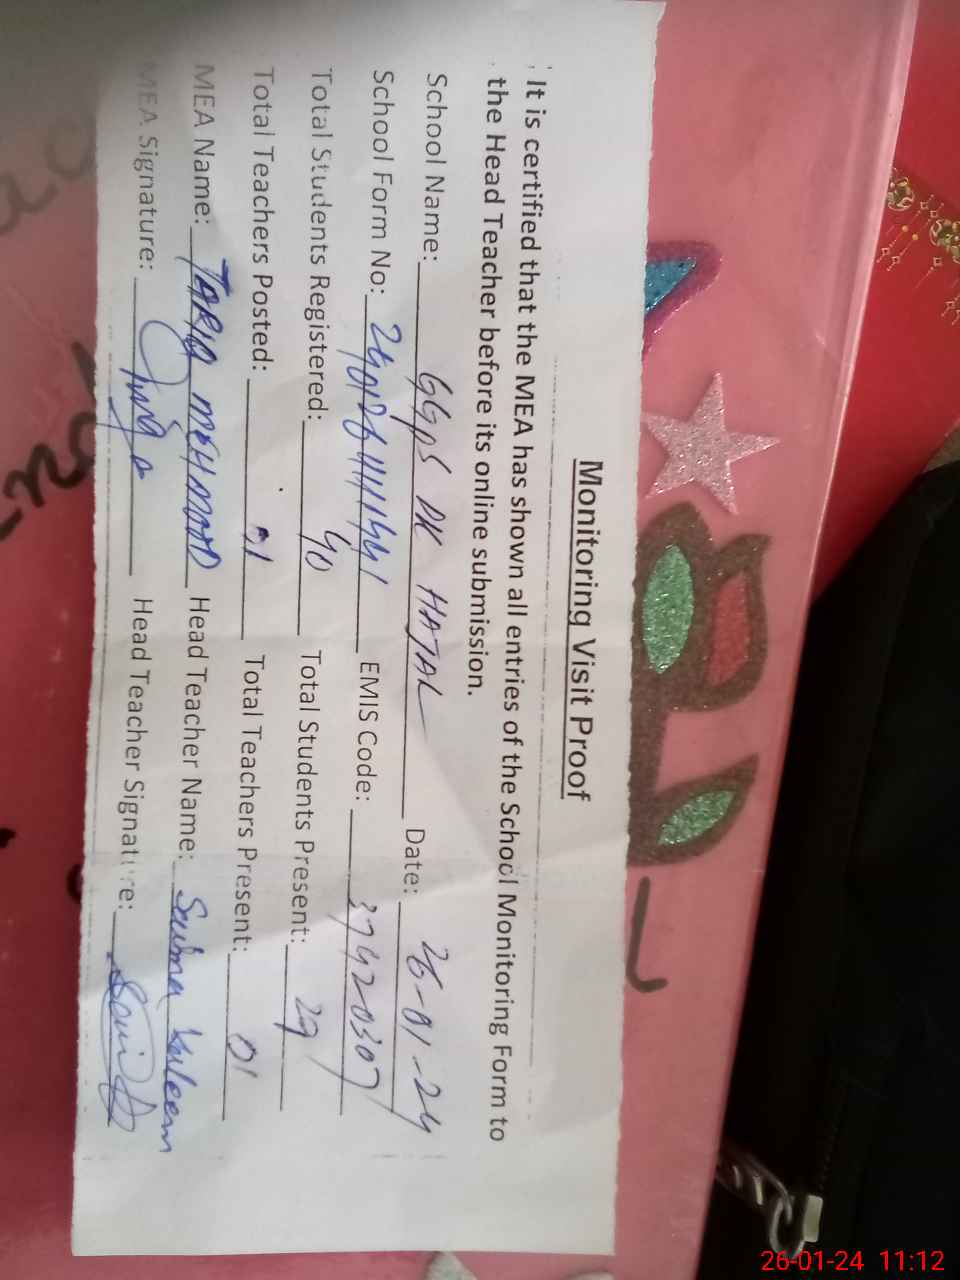 Monitoring Visit Proof
It is certified that the MEA has shown all entries of the School Monitoring Form to
the Head Teacher before its online submission.
School Name: GGPS DK HATAL Date: 26-01-24
School Form No: EMIS Code: 37420307
Total Students Registered: 40 Total Students Present: 29
Total Teachers Posted: 01 Total Teachers Present: 01
MEA Name: TARIQ MEHMOOD Head Teacher Name: Saima
MEA Signature: Head Teacher Signature:
26-01-24 11:12